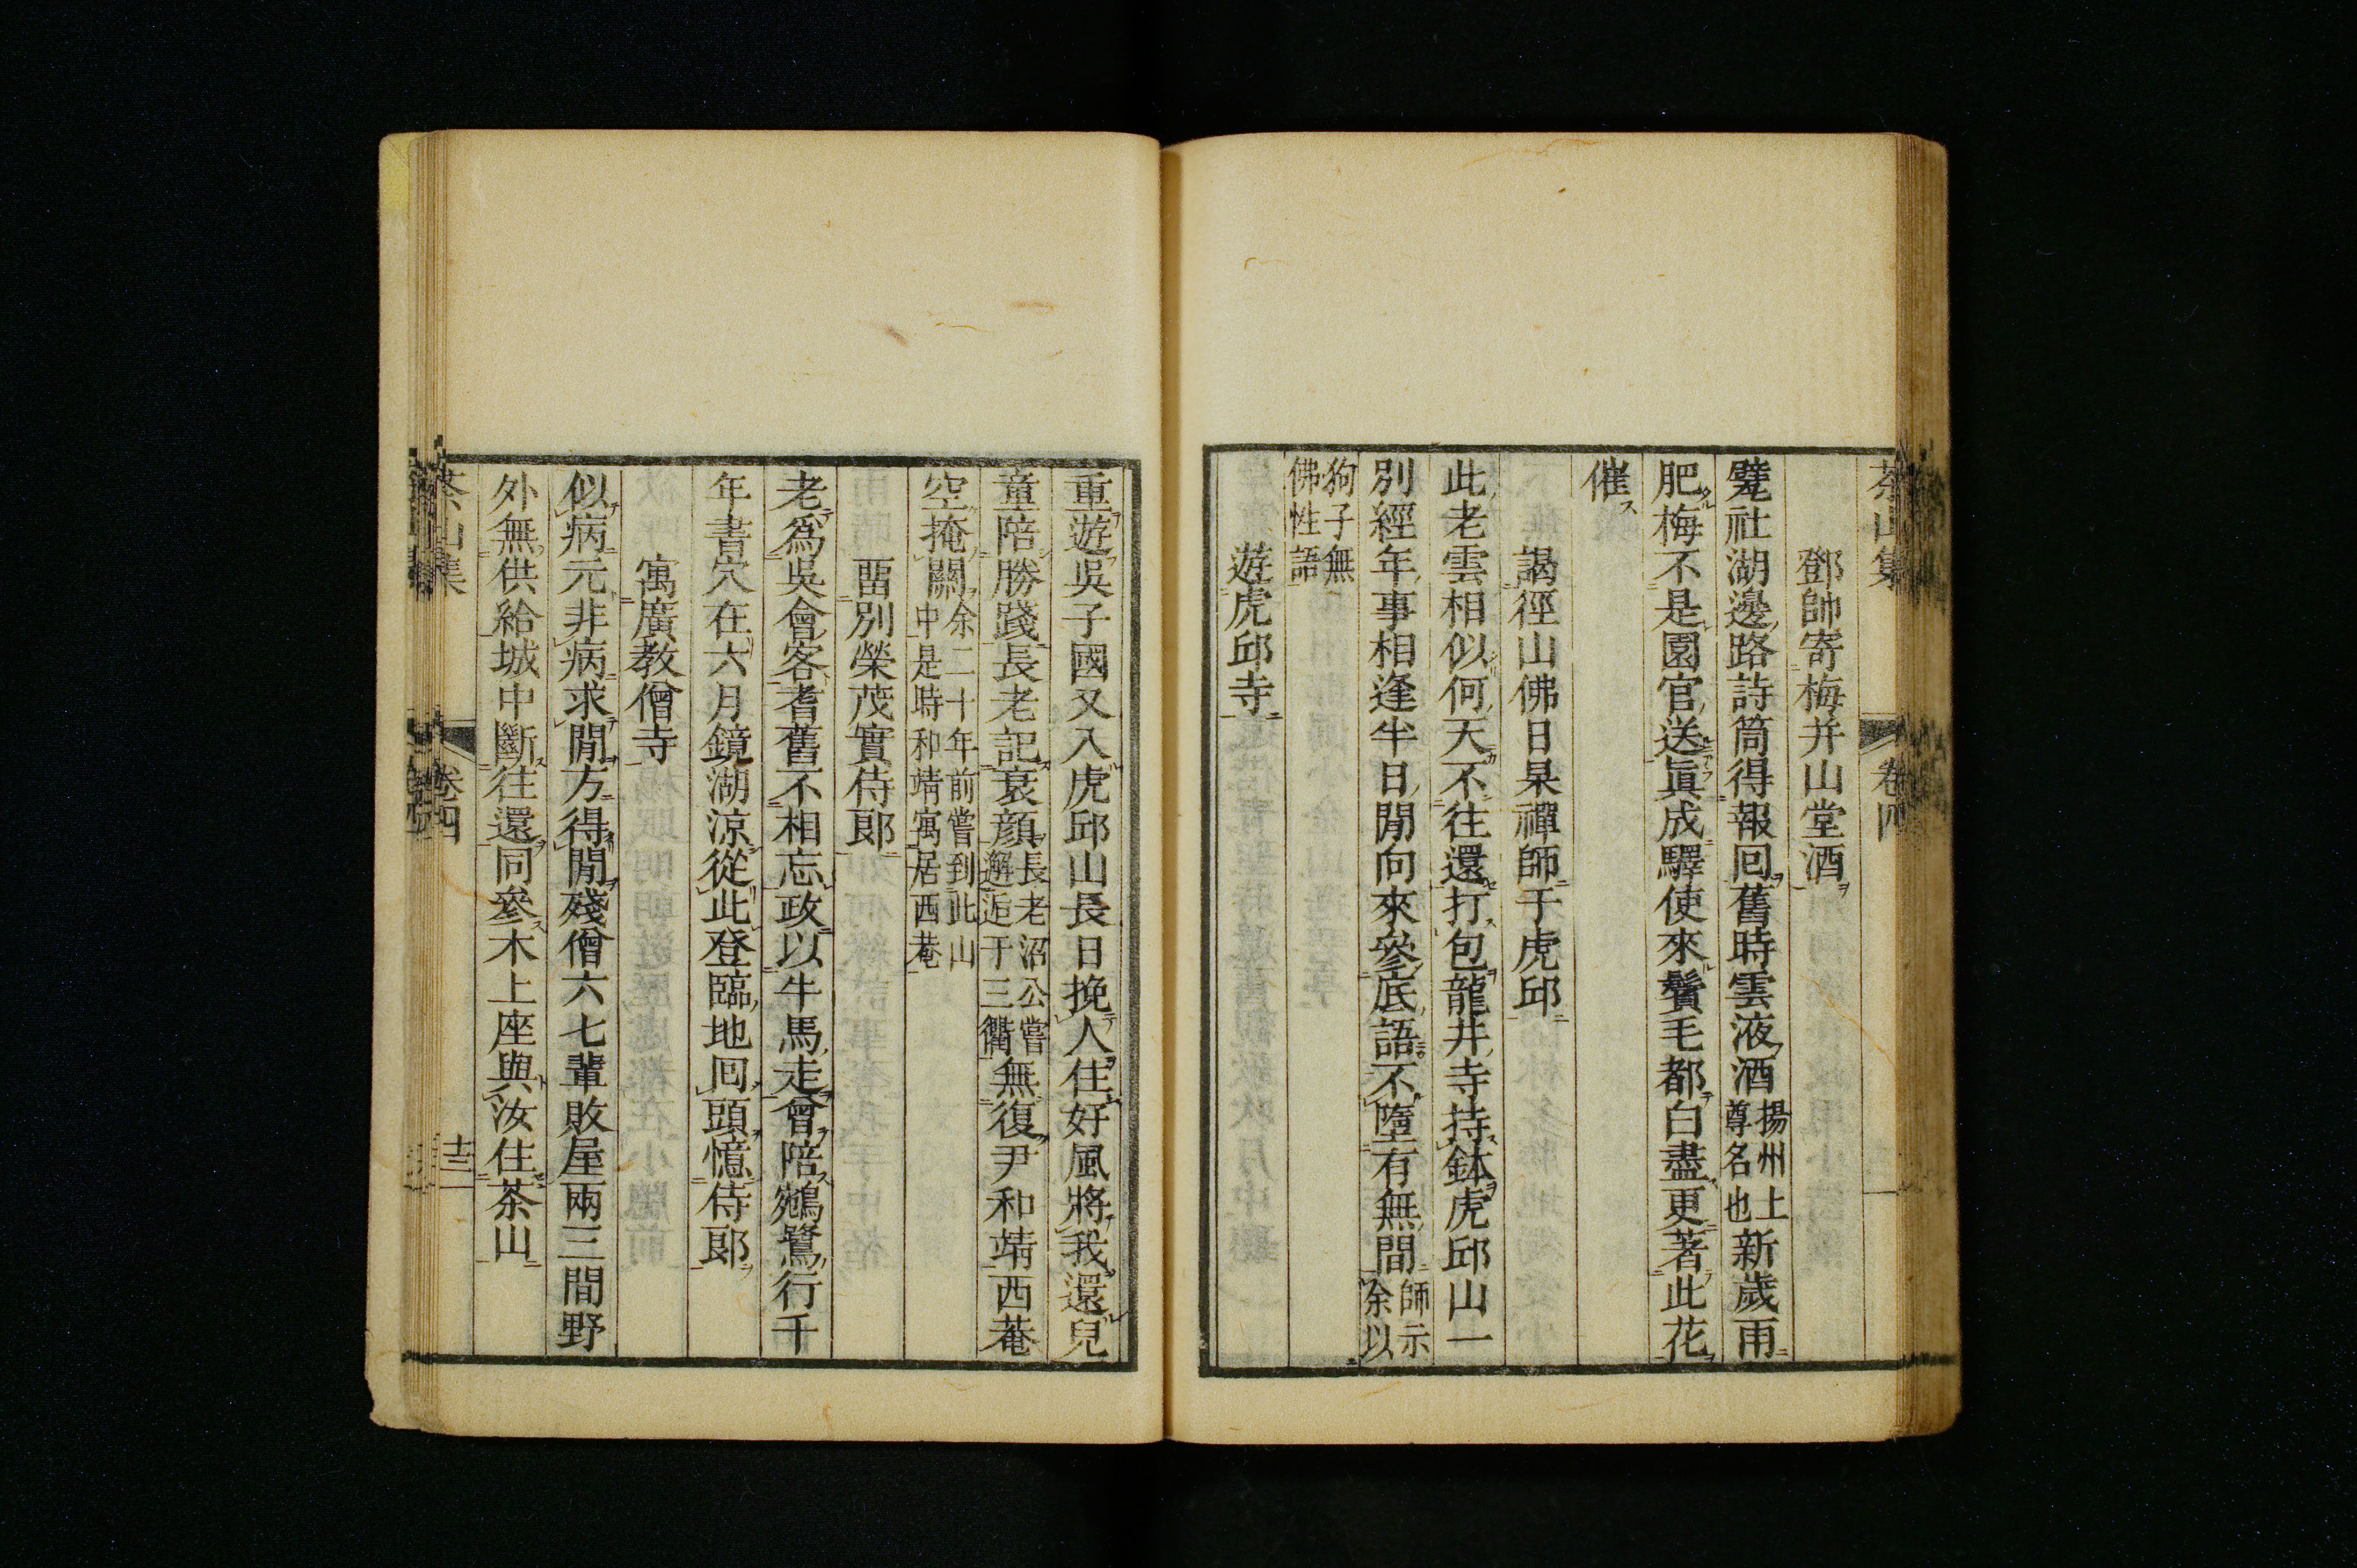 茶山集 卷四
鄧帥寄梅并山堂酒
甓社湖邊路詩筒得報回舊時雲液酒揚州上尊名也新歲雨
肥梅不是園官送眞成驛使來鬢毛都白盡更著此花
催
謁徑山佛日杲禪師于虎邱
此老雲相似何天不往還打包龍井寺持鉢虎邱山一
別經年事相逢半日閒向來參底語不墮有無間師示余以
狗子無佛性語
遊虎邱寺
重遊吳子國又入虎邱山長日挽人住好風將我還兒
童陪勝踐長老記衰顏長老沼公嘗邂逅于三衢無復尹和靖西菴
空掩關余二十年前嘗到此山中是時和靖寓居西菴
畱別榮茂實侍郞
老爲吳會客耆舊不相忘政以牛馬走曾陪鵷鷺行千
年書穴在六月鏡湖涼從此登臨地回頭憶侍郞
寓廣教僧寺
似病元非病求閒方得閒殘僧六七輩敗屋兩三間野
外無供給城中斷往還同參木上座與汝住茶山
茶山集 卷四 十二